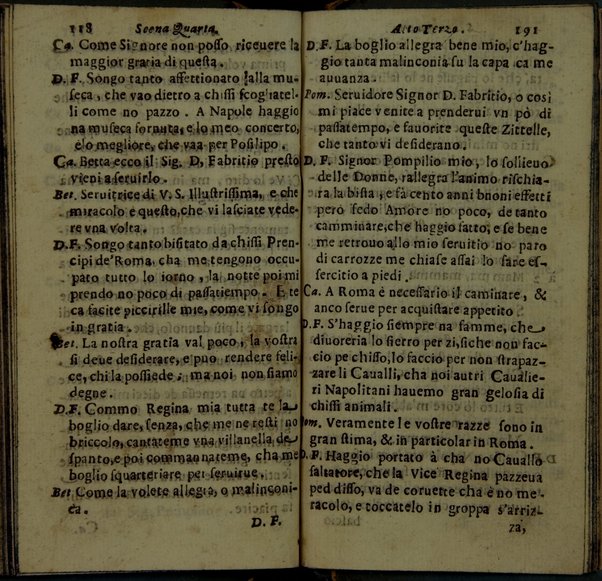 118 Scena Quarta.
Ca. Come Signore non posso riceuere la
maggior gratia di questa.
D. F. Songo tanto affettionato alla mu-
seca, che vao dietro a chissi scogliatel-
li come no pazzo. A Napole haggio
na museca fornuta, e lo meo concerto,
è lo megliore, che vaa per Posilipo.
Ca. Betta ecco il Sig. D, Fabritio presto
vieni a seruirlo.
Bet. Seruitrice di V. S. Illustrissima, e che
miracolo e questo, che vi lasciate vede-
re vna volta.
D. F. Songo tanto bisitato da chissi Pren-
cipi de'Roma, cha me tengono occu-
pato tutto lo iorno, la notte poi mi
prendo no poco di passatiempo. E te
ca facite piccirille mie, come vi songo
in gratia.
Bet. La nostra gratia val poco, la vostra
si deue desiderare, e puo rendere feli-
ce, chi la possiede; ma noi non siamo
degne.
D. F. Commo Regina mia tutta te la
boglio dare, senza, che me ne resti no
briccolo, cantateme vna villanella de
spanto, e poi commannateme, cha me
boglio squarteriare per seruirue.
Bet Come la volete allegra, o malinconi-
ca.
D. F.
Atto Terzo. 191
D. F. La boglio allegra bene mio, c'hag-
gio tanta malinconia su la capa ca me
auuanza.
Pom. Seruidore Signor D. Fabritio, o così
mi piace venite a prenderui vn pò di
passatempo, e fauorite queste Zittelle,
che tanto vi desiderano.
D. F. Signor Pompilio mio, lo sollieuo
delle Donne, rallegra l'animo rischia-
ra la bista, e fà cento anni bnoni effetti
però sedo Amore no poco, de tanto
camminare, che haggio fatto, e se bene
me retrouo allo mio seruitio no paro
di carrozze me chiase assai lo fare es-
sercitio a piedi.
Ca. A Roma è necessario il caminare, &
anco serue per acquistare appetito.
D. F. S'haggio siempre na famme, che
diuoreria lo fierro per zi, siche non fac-
cio pe chisso, lo faccio per non strapaz-
zare li Caualli, cha noi autri Caualie-
ri Napolitani hauemo gran gelosia di
chissi animali.
Pom. Veramente le vostre razze sono in
gran stima, & in particolar in Roma.
D. F. Haggio portato à cha no Cauallo
saltatore, che la Vice Regina pazzeua
ped disso, va de coruette cha è no me-
racolo, e toccatelo in groppa s'arriz-
za,